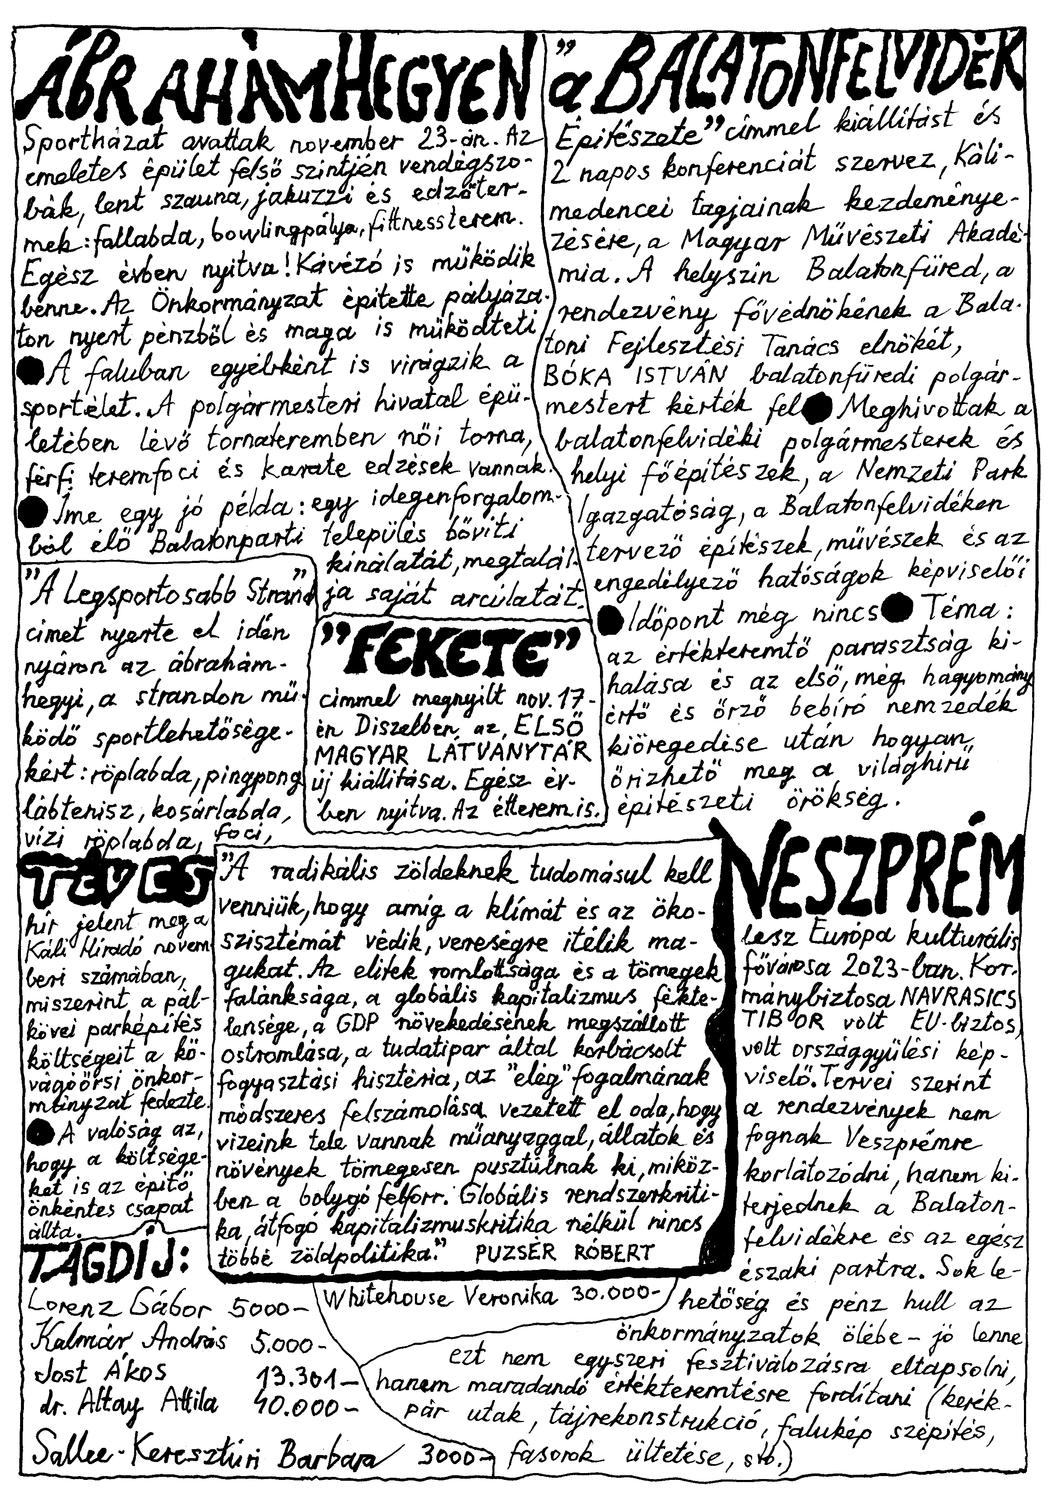 ÁBRAHÁMHEGYEN
Sportházat avattak november 23-án. Az
emeletes épület felső szintjén vendégszo-
bák, lent szauna, jakuzzi és edzőter-
mek: fallabda, bowlingpálya, fittnessterem.
Egész évben nyitva! Kávézó is működik
benne. Az Önkormányzat építette pályáza-
ton nyert pénzből és maga is működteti
● A faluban egyébként is virágzik a
sportélet. A polgármesteri hivatal épü-
letében lévő tornateremben női torna,
férfi teremfoci és karate edzések vannak.
● Íme egy jó példa: egy idegenforgalom-
ból élő Balatonparti település bővíti
kínálatát, megtalál-
ja saját arculatát.
"A Legsportosabb Strand"
címet nyerte el idén
nyáron az ábrahám-
hegyi, a strandon mű-
ködő sportlehetősége-
kért: röplabda, pingpong
lábtenisz, kosárlabda,
vízi röplabda, foci,
"FEKETE"
címmel megnyílt nov. 17-
én Diszelben, az, ELSŐ
MAGYAR LÁTVÁNYTÁR
új kiállítása. Egész év-
ben nyitva. Az étterem is.
"a BALATONFELVIDÉK
Építészete" címmel kiállítást és
2 napos konferenciát szervez, Káli-
medencei tagjainak kezdeménye-
zésére, a Magyar Művészeti Akadé-
mia. A helyszín Balatonfüred, a
rendezvény fővédnökének a Bala-
toni Fejlesztési Tanács elnökét,
BÓKA ISTVÁN balatonfüredi polgár-
mestert kérték fel ● Meghívottak a
balatonfelvidéki polgármesterek és
helyi főépítészek, a Nemzeti Park
Igazgatóság, a Balatonfelvidéken
tervező építészek, művészek és az
engedélyező hatóságok képviselői
● Időpont még nincs ● Téma:
az értékteremtő parasztság ki-
halása és az első, még hagyomány
értő és őrző bebíró nemzedék
kiöregedése után hogyan
őrizhető meg a világhírű
építészeti örökség.
TÉVES
hír jelent meg a
Káli Híradó novem
beri számában,
miszerint a pál-
kövei parképítés
költségeit a kő-
vágóörsi önkor-
mányzat fedezte.
● A valóság az,
hogy a költsége-
ket is az építő
önkéntes csapat
állta.
"A radikális zöldeknek tudomásul kell
venniük, hogy amíg a klímát és az öko-
szisztémát védik, vereségre ítélik ma-
gukat. Az elitek romlottsága és a tömegek
falánksága, a globális kapitalizmus fékte-
lensége, a GDP növekedésének megszállott
ostromlása, a tudatipar által korbácsolt
fogyasztási hisztéria, az "elég" fogalmának
módszeres felszámolása vezetett el oda, hogy
vizeink tele vannak műanyaggal, állatok és
növények tömegesen pusztulnak ki, miköz-
ben a bolygó felforr. Globális rendszerkriti-
ka, átfogó kapitalizmuskritika nélkül nincs
többé zöldpolitika." PUZSÉR RÓBERT
VESZPRÉM
lesz Európa kulturális
fővárosa 2023-ban. Kor-
mánybiztosa NAVRASICS
TIBOR volt EU-biztos,
volt országgyűlési kép-
viselő. Tervei szerint
a rendezvények nem
fognak Veszprémre
korlátozódni, hanem ki-
terjednek a Balaton-
felvidékre és az egész
északi partra. Sok le-
hetőség és pénz hull az
önkormányzatok ölébe - jó lenne
ezt nem egyszeri fesztiválozásra eltapsolni,
hanem maradandó értékteremtésre fordítani (kerék-
pár utak, tájrekonstrukció, falukép szépítés,
fasorok ültetése, stb.)
TAGDÍJ:
Lorenz Gábor 5000-
Kalmár András 5.000-
Jost Ákos 13.301-
dr. Altay Attila 10.000-
Sallee-Keresztúri Barbara 3000-
Whitehouse Veronika 30.000-